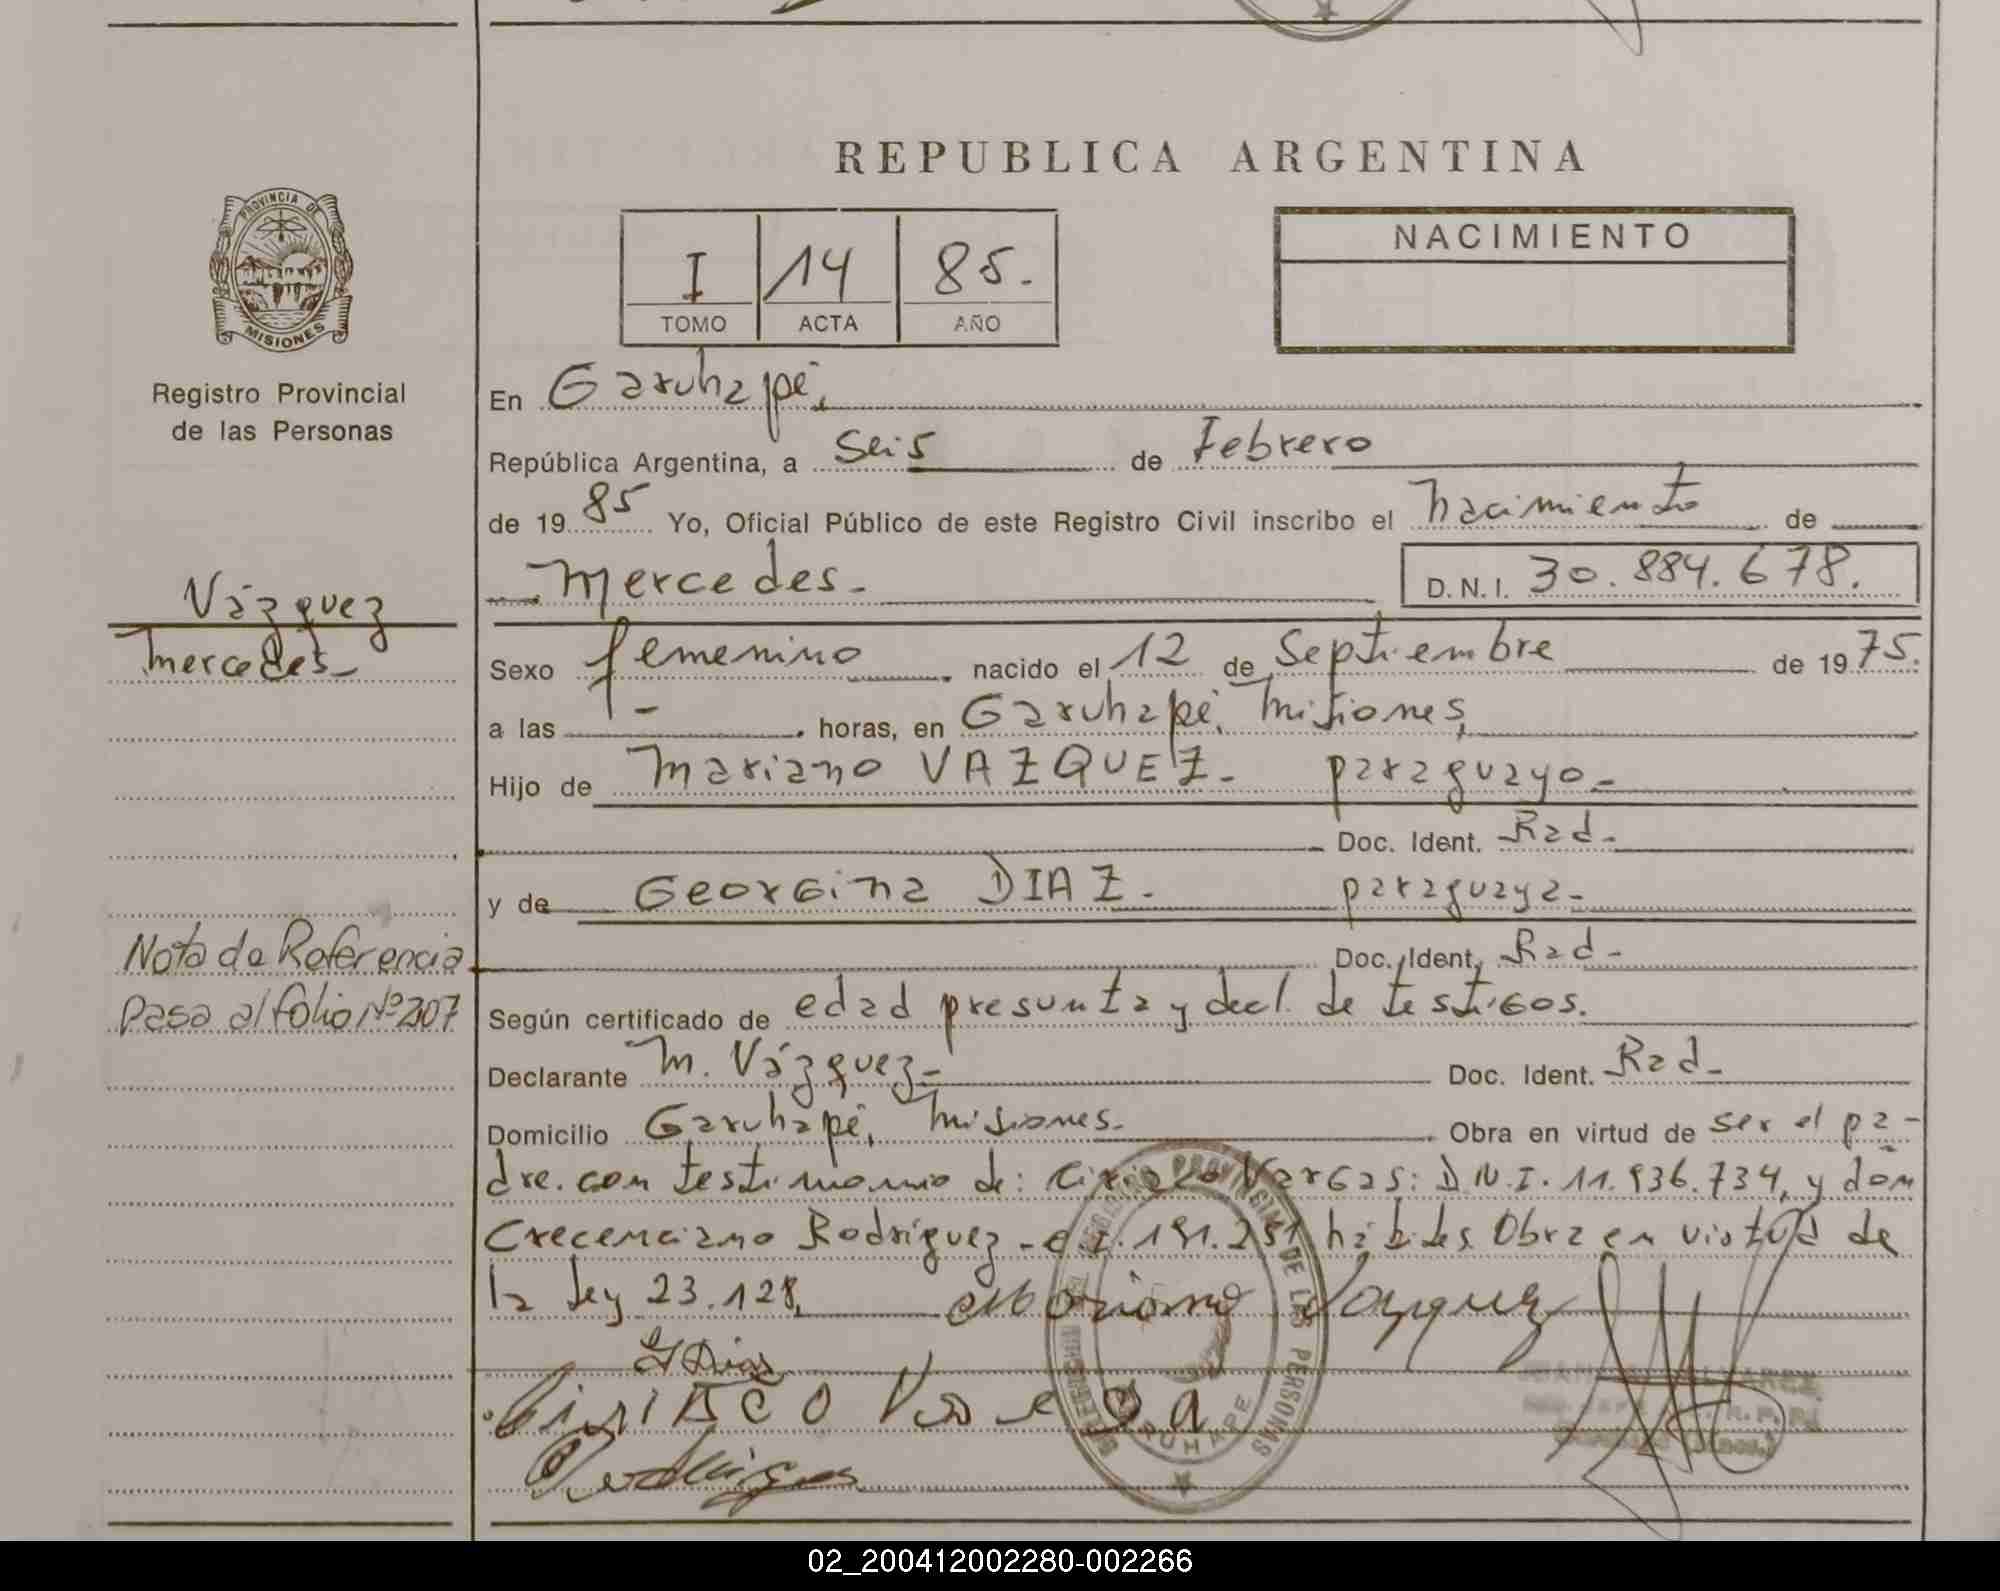 REPUBLICA ARGENTINA
PROVINCIA DE
MISIONES
Registro Provincial
de las Personas
I 14 85.
TOMO ACTA AÑO
NACIMIENTO
En Garuhapé,
República Argentina, a Seis de Febrero
de 19 85 Yo, Oficial Público de este Registro Civil inscribo el nacimiento de
Mercedes- D.N.I. 30.884.678.
Vázquez
Mercedes-
Sexo femenino nacido el 12 de Septiembre de 19 75.
a las - horas, en Garuhapé, Misiones,
Hijo de Mariano VAZQUEZ- paraguayo-
Doc. Ident. Rad-
y de Georgina DIAZ- paraguaya-
Doc. Ident. Rad-
Nota de Referencia
Pasa al folio Nº 207
Según certificado de edad presunta y decl. de testigos.
Declarante M. Vázquez- Doc. Ident. Rad-
Domicilio Garuhapé, Misiones- Obra en virtud de ser el pa-
dre. con testimonio de: Ciriaco Vargas: D.N.I. 11.936.734, y don
Crecenciano Rodríguez- C.I. 191.251 hábiles Obra en virtud de
la Ley 23.128,
Mariano Vazquez
G Dias
CiriACO Vargas
Rodrigues
PROVINCIAL DE LAS PERSONAS
02_200412002280-002266